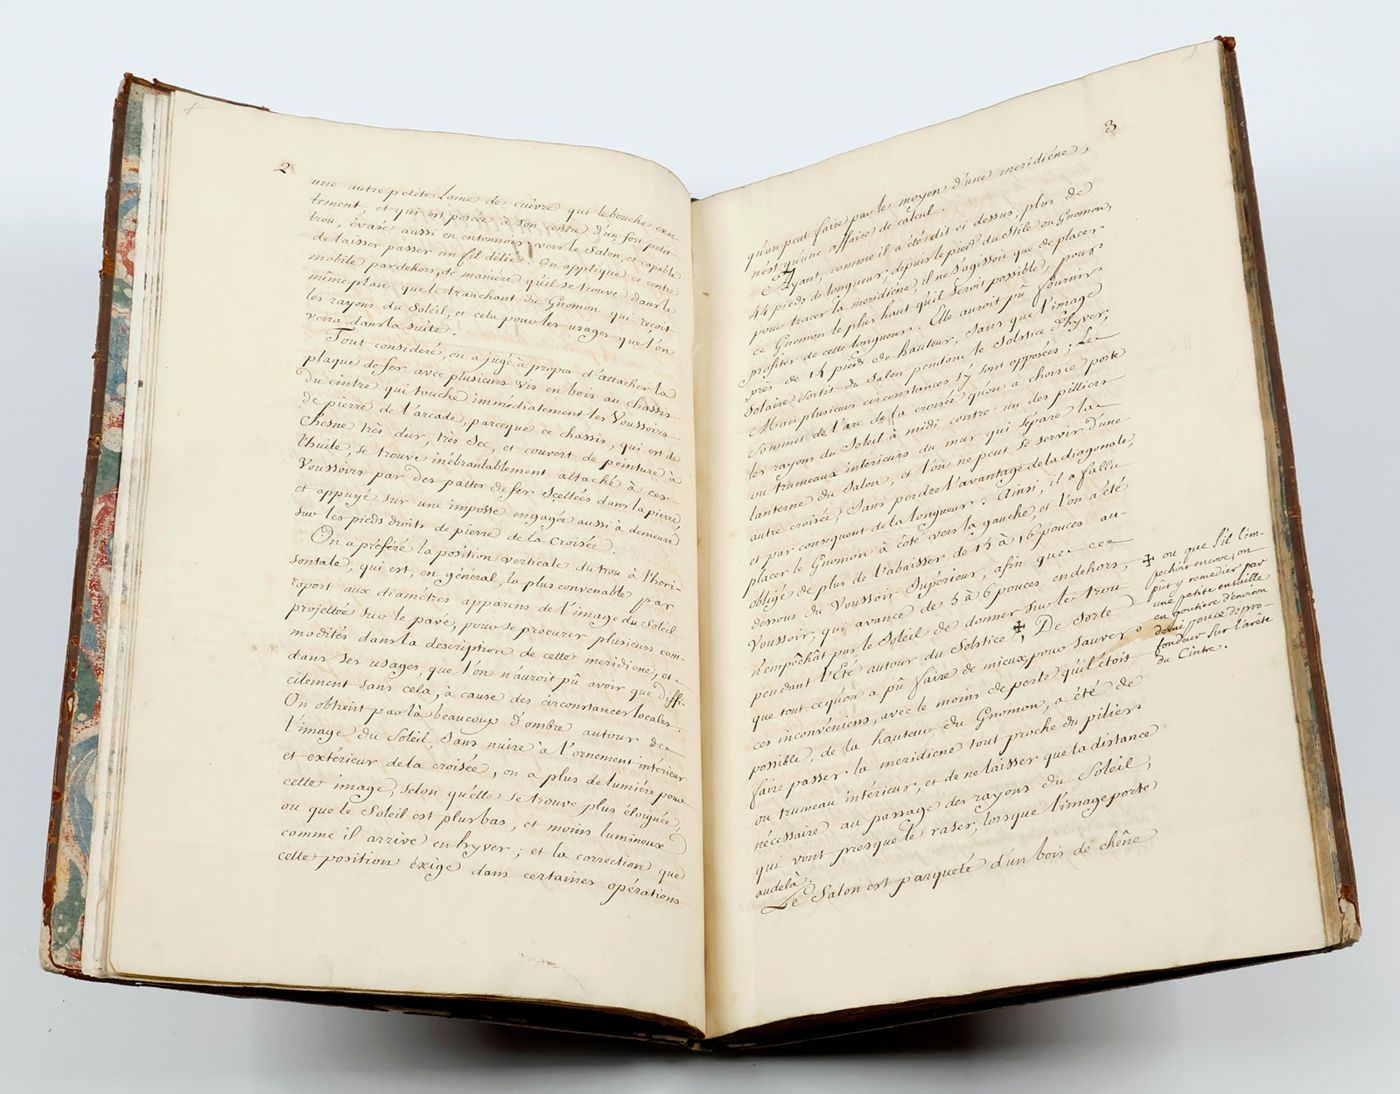 2
une autre petite Lame de cuivre qui le bouche exac-
tement, et qui est percée à son centre d'un fou petit
trou, évasé aussi en entonnoir vers le Salon, et capable
de laisser passer un fil délié. On applique ce centre
mobile par dehors, de manière qu'il se trouve dans le
même plan que le tranchant du Gnomon qui reçoit
les rayons du Soleil, et cela pour les usages que l'on
verra dans la suite.
Tout considéré, on a jugé à propos d'attacher la
plaque de fer avec plusieurs vis en bois au chassis
du cintre qui touche immédiatement les Voussoirs
de pierre de l'arcade, parceque ce chassis, qui est de
Chesne très dur, très Sec, et couvert de peinture à
l'huile, se trouve inébranlablement attaché à ces
Voussoirs par des pattes de fer Scellées dans la pierre,
et appuyé sur une imposte engagée aussi à demeure
sur les pieds droits de pierre de la croisée.
On a préféré la position verticale du trou à l'hori-
sontale, qui est, en général, la plus convenable par
raport aux diamétres apparens de l'image du Soleil
projettée sur le pavé, pour se procurer plusieurs com-
modités dans la description de cette meridiene, et
dans ses usages, que l'on n'auroit pû avoir que diffi-
cilement sans cela, à cause des circonstances locales.
On obtient par là beaucoup d'ombre autour de
l'image du Soleil, sans nuire à l'ornement intérieur
et extérieur de la croisée, on a plus de lumière pour
cette image, selon qu'elle se trouve plus éloignée,
ou que le Soleil est plus bas, et moins lumineux
comme il arrive en hyver; et la correction que
cette position éxige dans certaines opérations
3
qu'on peut faire par le moyen d'une meridiéne,
n'est qu'une affaire de calcul.
Ayant, comme il a été dit ci dessus, plus de
44 pieds de longueur depuis le pied du Stile ou Gnomon,
pour tracer la meridiéne, il ne s'agissoit que de placer
ce Gnomon le plus haut qu'il seroit possible, pour
profiter de cette longueur. Elle auroit pû fournir
près de 14 pieds de hauteur, Sans que l'image
Solaire sortit du Salon pendant le Solstice d'hyver,
Mais plusieurs circonstances s'y sont opposées; Le
Sommet de l'arc de la croisée qu'on a choisie porte
les rayons du Soleil à midi contre un des pilliers
ou trumeaux interieurs du mur qui separe la
lanterne du Salon, et l'on ne peut se servir d'une
autre croisée, sans perdre l'avantage de la diagonale,
et par consequent de la longueur. Ainsi, il a fallu
placer le Gnomon à côté vers la gauche, et l'on a été
obligé de plus de l'abaisser de 15 à 16 pouces au-
dessous du Voussoir Supérieur, afin que ce
Voussoir, qui avance de 5 à 6 pouces en dehors,
n'empêchât pas le Soleil de donner sur le trou
pendant l'Eté autour du Solstice ✠; De sorte
que tout ce qu'on a pû faire de mieux pour sauver
ces inconvéniens, avec le moins de perte qu'il étoit
possible, de la hauteur du Gnomon, a été de
faire passer la meridiene tout proche du pilier
ou trumeau intérieur, et de ne laisser que la distance
nécessaire au passage des rayons du Soleil,
qui vont presque le raser, lorsque l'image porte
audelà.
Le Salon est parqueté d'un bois de chêne
✠ ou que s'il l'em-
pechoit encore, on
pût y remedier par
une petite entaille
en goutiere d'environ
demi pouce de pro-
fondeur sur l'arête
du Cintre.